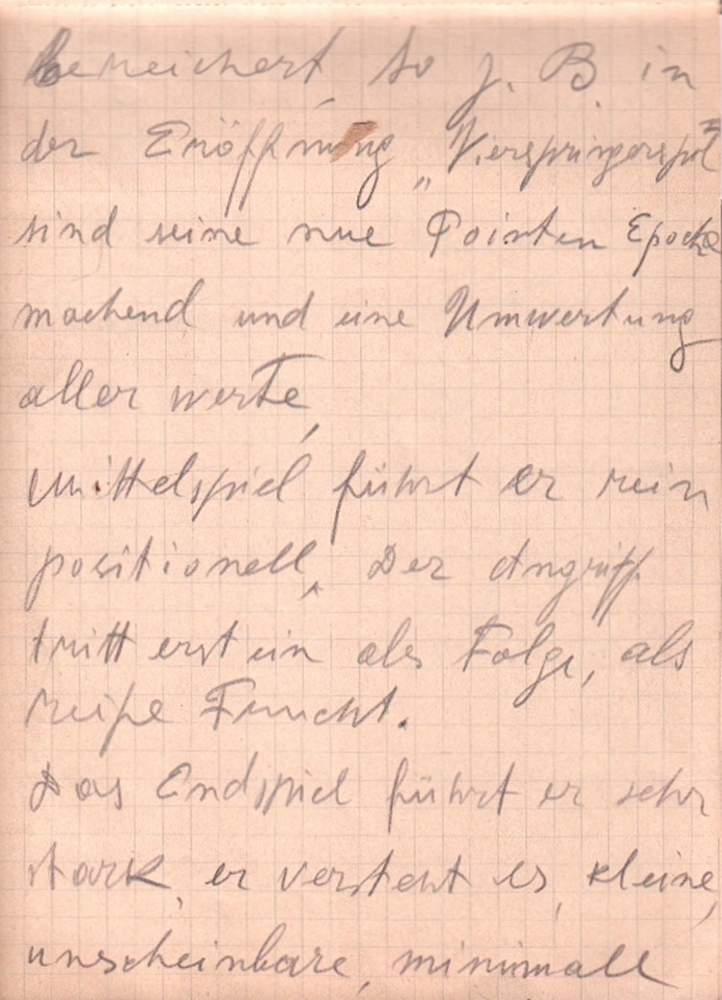 bereichert, so z. B. in
der Eröffnung „Vierspringerspl
sind seine neue Pointen Epoche
machend und eine Umwertung
aller werte,
Mittelspiel führt er rein
positionell, Der Angriff
tritt erst ein als Folge, als
reife Frucht.
Das Endspiel führt er sehr
stark, er versteht es, kleine,
unscheinbare, minimall